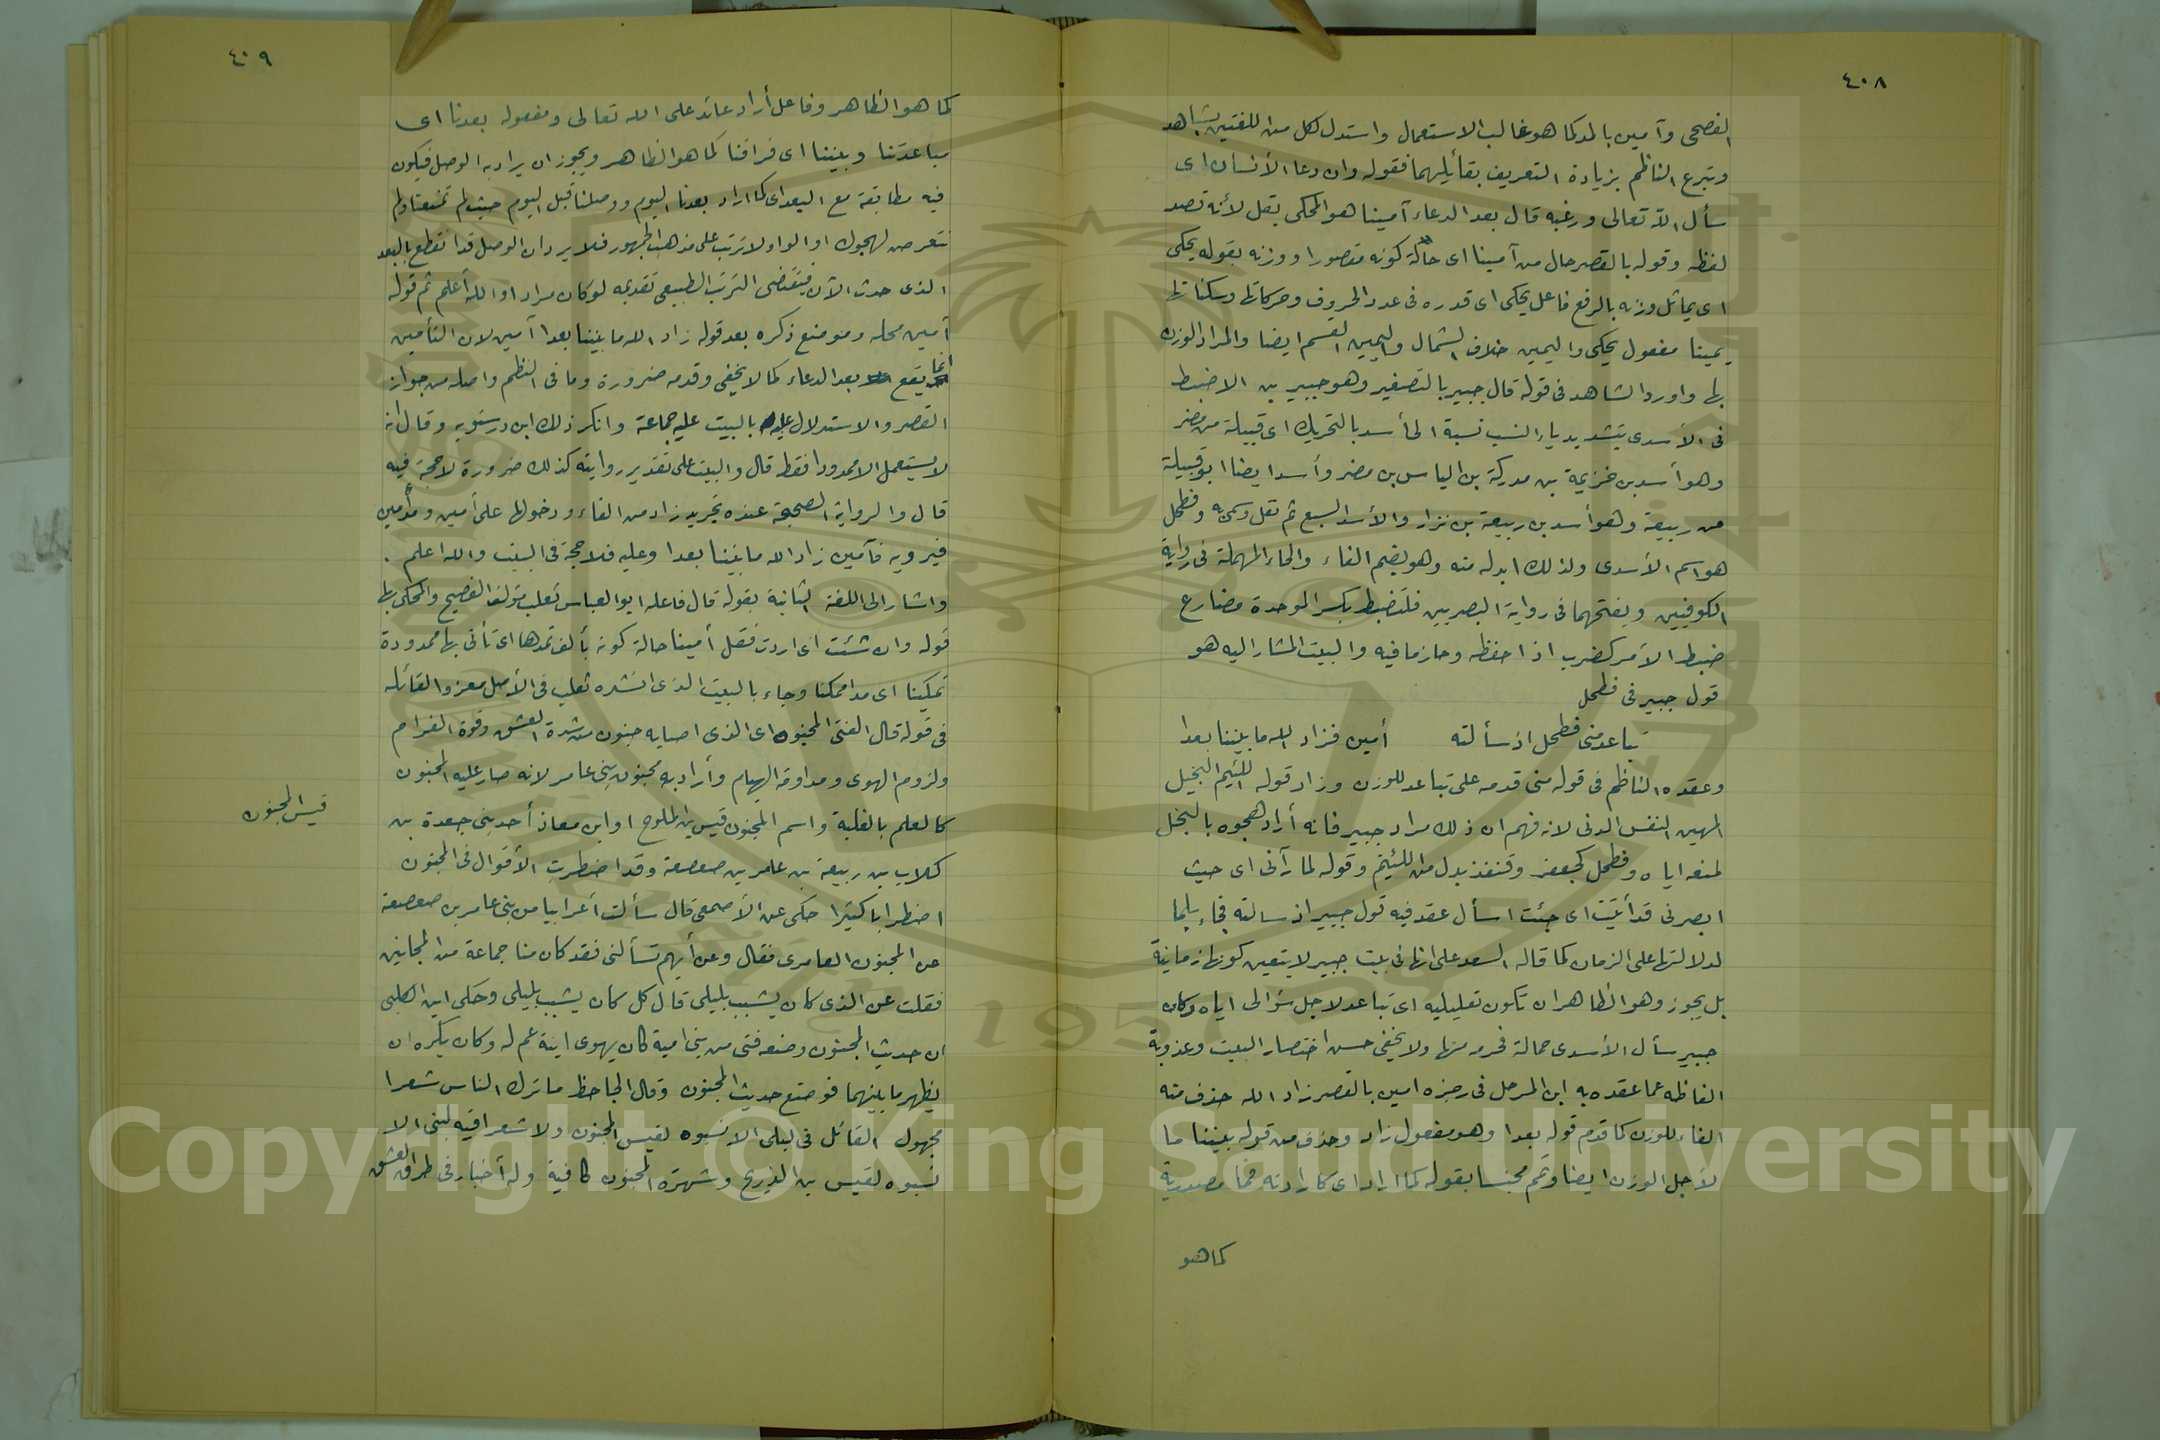 ٤٠٨
الفصحى وآمين بالمد كما هو غالب الاستعمال واستدل لكل من اللغتين بشاهد
وتبرع الناظم بزيادة التعريف بقائليهما فقوله وان دعا الأنسان اى
سأل الله تعالى ورغبه قال بعد الدعاء آمينا هو المحكى بقل لأنه قصد
لفظه وقوله بالقصر حال من آمينا اى حالة كونه مقصورا ووزنه بقوله يحكى
اى يماثل وزنه بالرفع فاعل يحكى اى قدره فى عدد الحروف وحركاتها وسكناتها
يمينا مفعول يحكى واليمين خلاف الشمال واليمين القسم ايضا والمراد الوزن
بها واورد الشاهد فى قوله قال جبير بالتصغير وهو جبير بن الاضبط
فى الأسدى بتشديد ياء النسب نسبة الى أسد بالتحريك اى قبيلة من مضر
وهو أسد بن خزيمة بن مدركة بن الياس بن مضر وأسد ايضا ابو قبيلة
من ربيعة وهو أسد بن ربيعة بن نزار والأسد السبع ثم نقل وسمى به وفطحل
هو اسم الأسدى ولذلك ابدله منه وهو بضم الفاء والحاء المهملة فى رواية
الكوفيين وبفتحهما فى رواية البصريين فلتضبط بكسر الموحدة مضارع
ضبط الأمر كضرب اذا حفظه وحاز ما فيه والبيت المشار اليه هو
قول جبير فى فطحل
تباعد منى فطحل اذ سألته أمين فزاد الله ما بيننا بعدا
وعقده الناظم فى قوله منى قدمه على تباعد للوزن وزاد قوله اللئيم البخيل
المهين النفس الدنى لانه فهم ان ذلك مراد جبير فانه أراد هجوه بالبخل
لمنعه اياه وفطحل كجعفر وقنفذ بدل من اللئيم وقوله لما رآنى اى حيث
ابصرنى قد أتيت اى جئت اسأل عقد فيه قول جبير اذ سالته فجاء بلما
لدلالتها على الزمان كما قاله السعد على انها فى بيت جبير لا يتعين كونها زمانية
بل يجوز وهو الظاهر ان تكون تعليليه اى تباعد لاجل سؤالى اياه وكان
جبير سأل الأسدى حمالة فحرمه منها ولا يخفى حسن اختصار البيت وعذوبة
الفاظه عما عقده به ابن المرحل فى رجزه امين بالقصر زاد الله حذف منه
الفاء للوزن كما قدم قوله بعدا وهو مفعول زاد وحذف من قوله بيننا ما
لأجل الوزن ايضا وتمم مجنسا بقوله كما اراد اى كارادته فما مصدرية
كما هو
٤٠٩
كما هو الظاهر وفاعل أراد عائد على الله تعالى ومفعوله بعدنا اى
مباعدتنا وبيننا اى فراقنا كما هو الظاهر ويجوز ان يراد به الوصل فيكون
فيه مطابقة مع البعد اى كما اراد بعدنا اليوم ووصلنا قبل اليوم حيث لم تمنعنا ولم
نتعرض لهجوك او الواو لا ترتب على مذهب الجمهور فلا يرد ان الوصل قد انقطع بالبعد
الذى حدث الآن فيقتضى الترتب الطبيعى تقديمه لو كان مرادا والله أعلم ثم قوله
آمين محله وموضع ذكره بعد قوله زاد الله ما بيننا بعدا آمين لان التأمين
انما يقع بعد الدعاء كما لا يخفى وقدمه ضرورة وما فى النظم واصله من جواز
القصر والاستدلال عليه بالبيت عليه جماعة وانكر ذلك ابن درستويه وقال انه
لا يستعمل الا ممدودا فقط قال والبيت على تقدير روايته كذلك ضرورة لا حجة فيه
قال والرواية الصحيحة عنده تجريد زاد من الفاء ودخولها على أمين ومد أمين
فيرويه فآمين زاد الله ما بيننا بعدا وعليه فلا حجة فى البيت والله اعلم .
واشار الى اللغة الثانية بقوله قال فاعله ابو العباس ثعلب مؤلف الفصيح والمحكى بها
قوله وان شئت اى اردت فقل أمينا حالة كونه بألف تمدها اى تأتى بها ممدودة
تمكينا اى مدا ممكنا وجاء بالبيت الذى انشده ثعلب فى الأصل معزو القائله
فى قوله قال الفتى المجنون اى الذى اصابه جنون من شدة العشق وقوة الغرام
ولزوم الهوى ومداومة الهيام وأراد به مجنون بنى عامر لانه صار عليه المجنون
كالعلم بالغلبة واسم المجنون قيس بن الملوح او ابن معاذ أحد بنى جعدة بن
كلاب بن ربيعة بن عامر بن صعصعة وقد اضطربت الأقوال فى المجنون
اضطرابا كثيرا حكى عن الأصمعى قال سألت أعرابيا من بنى عامر بن صعصعة
عن المجنون العامرى فقال وعن أيهم تسألنى فقد كان منا جماعة من المجانين
فقلت عن الذى كان يشبب بليلى قال كل كان يشبب بليلى وحكى ابن الكلبى
ان حديث المجنون وضعه فتى من بنى امية كان يهوى ابنة عم له وكان يكره ان
يظهر ما بينهما فوضع حديث المجنون وقال الجاحظ ما ترك الناس شعرا
مجهول القائل فى ليلى الا نسبوه لقيس المجنون ولا شعرا فيه لبنى الا
نسبوه لقيس بن الذريح وشهرة المجنون كافية وله أخبار فى طراق العشق
قيس المجنون
Copyright © King Saud University
1957